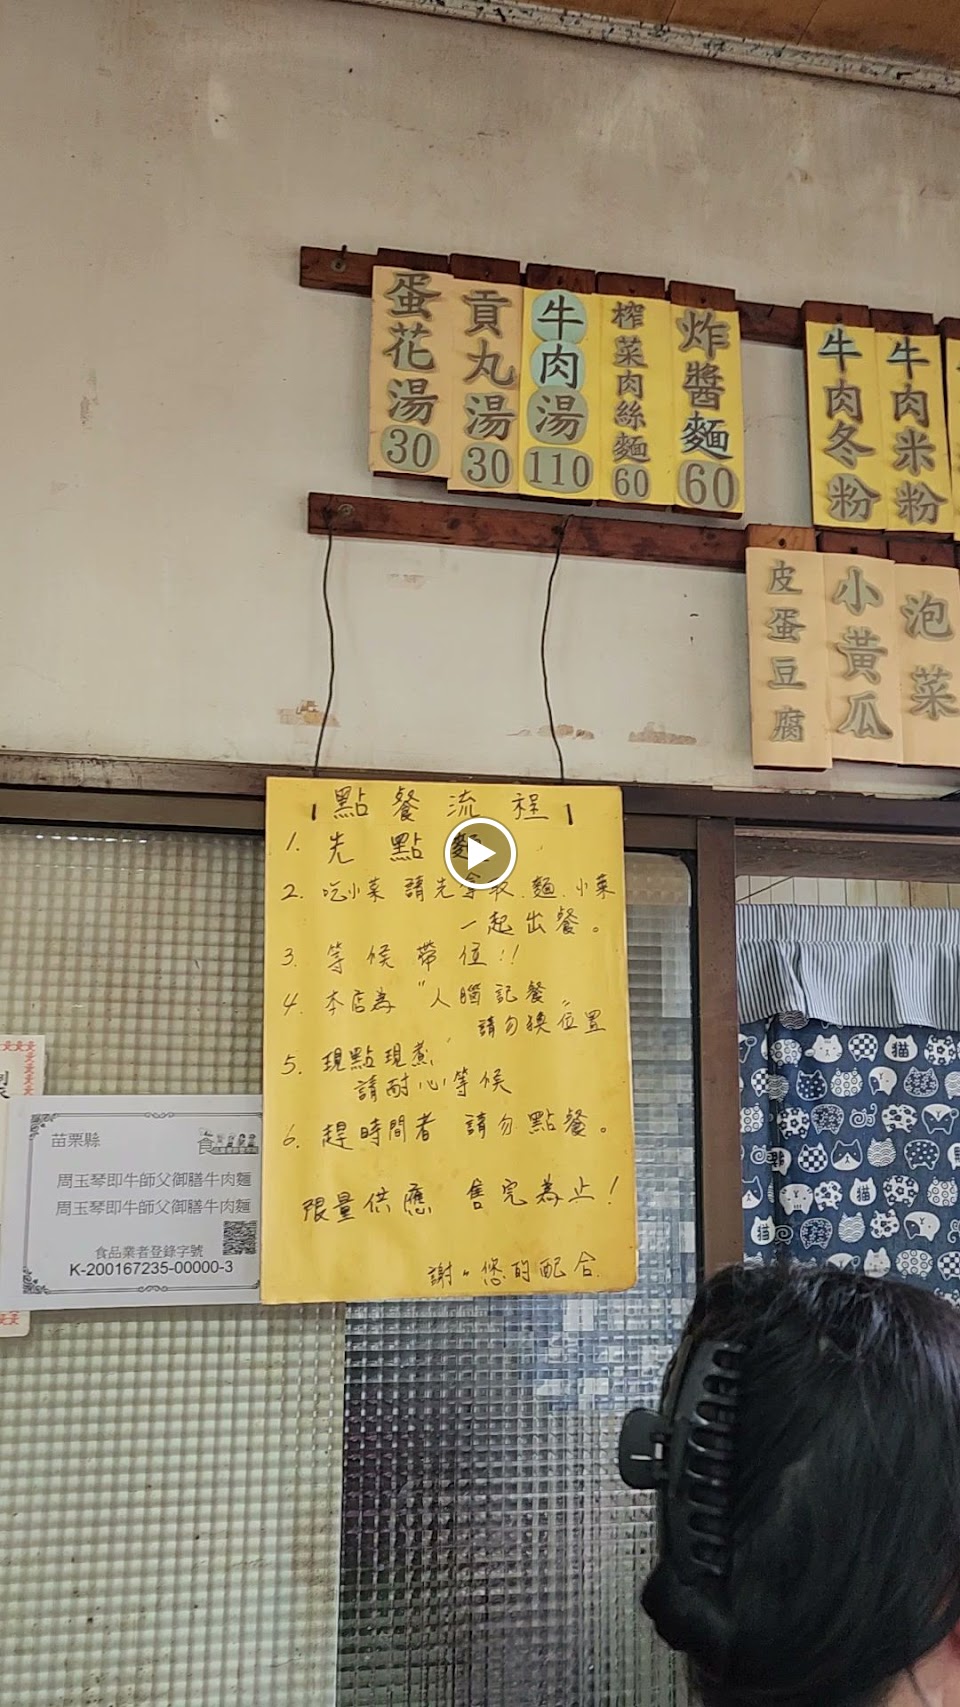 蛋花湯30
貢丸湯30
牛肉湯110
榨菜肉絲麵60
炸醬麵60
牛肉冬粉
牛肉米粉
皮蛋豆腐
小黃瓜
泡菜
點餐流程
1. 先點麵
2. 吃小菜 請先拿取.麵.小菜
一起出餐。
3. 等候帶位!!
4. 本店為"人腦記餐"
請勿換位置
5. 現點現煮
請耐心等候
6. 趕時間者 請勿點餐。
限量供應 售完為止!
謝〃您的配合.
苗栗縣
食
周玉琴即牛師父御膳牛肉麵
周玉琴即牛師父御膳牛肉麵
食品業者登錄字號
K-200167235-00000-3
猫
猫
猫